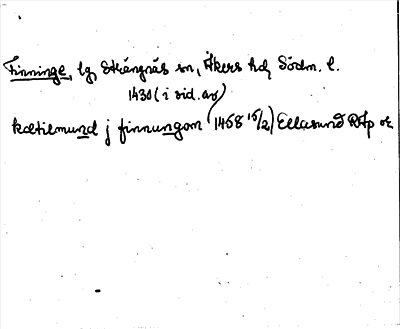 Finninge, lg, Strängnäs sn, Åkers hd, Södm. l.
1430 (i vid. av
ketilmund j finnungom (1458 15/2) Ellasund RAp or